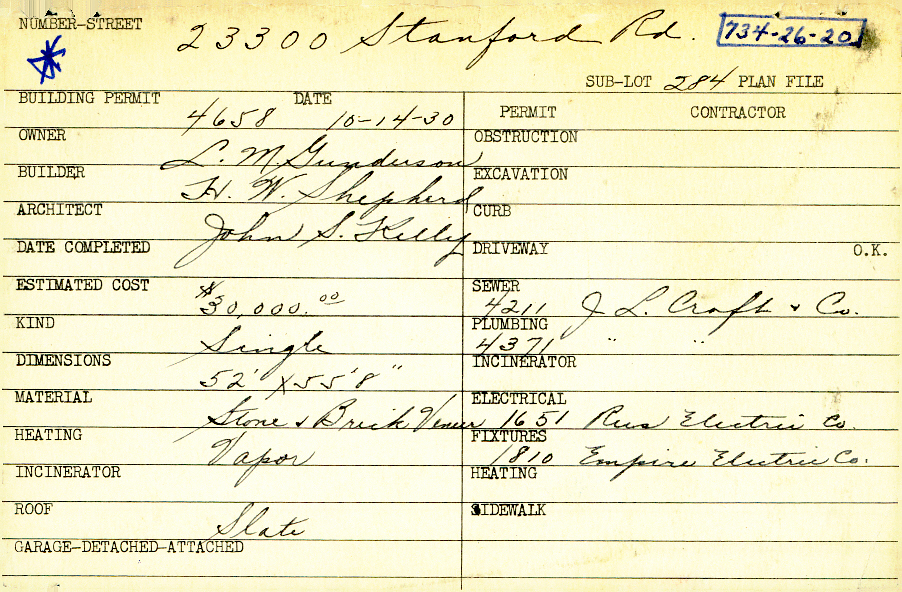 NUMBER-STREET 23300 Stanford Rd. 734-26-20
SUB-LOT 284 PLAN FILE
BUILDING PERMIT 4658 DATE 10-14-30
OWNER L. M. Gunderson
BUILDER H. W. Shepherd
ARCHITECT John S. Kelly
DATE COMPLETED
ESTIMATED COST $30,000.00
KIND Single
DIMENSIONS 52' x 55' 8"
MATERIAL Stone & Brick Veneer
HEATING Vapor
INCINERATOR
ROOF Slate
GARAGE-DETACHED-ATTACHED
PERMIT CONTRACTOR
OBSTRUCTION
EXCAVATION
CURB
DRIVEWAY O.K.
SEWER 4211 J. L. Croft & Co.
PLUMBING 4371 " "
INCINERATOR
ELECTRICAL 1651 Electric Co.
FIXTURES 1810 Empire Electric Co.
HEATING
SIDEWALK